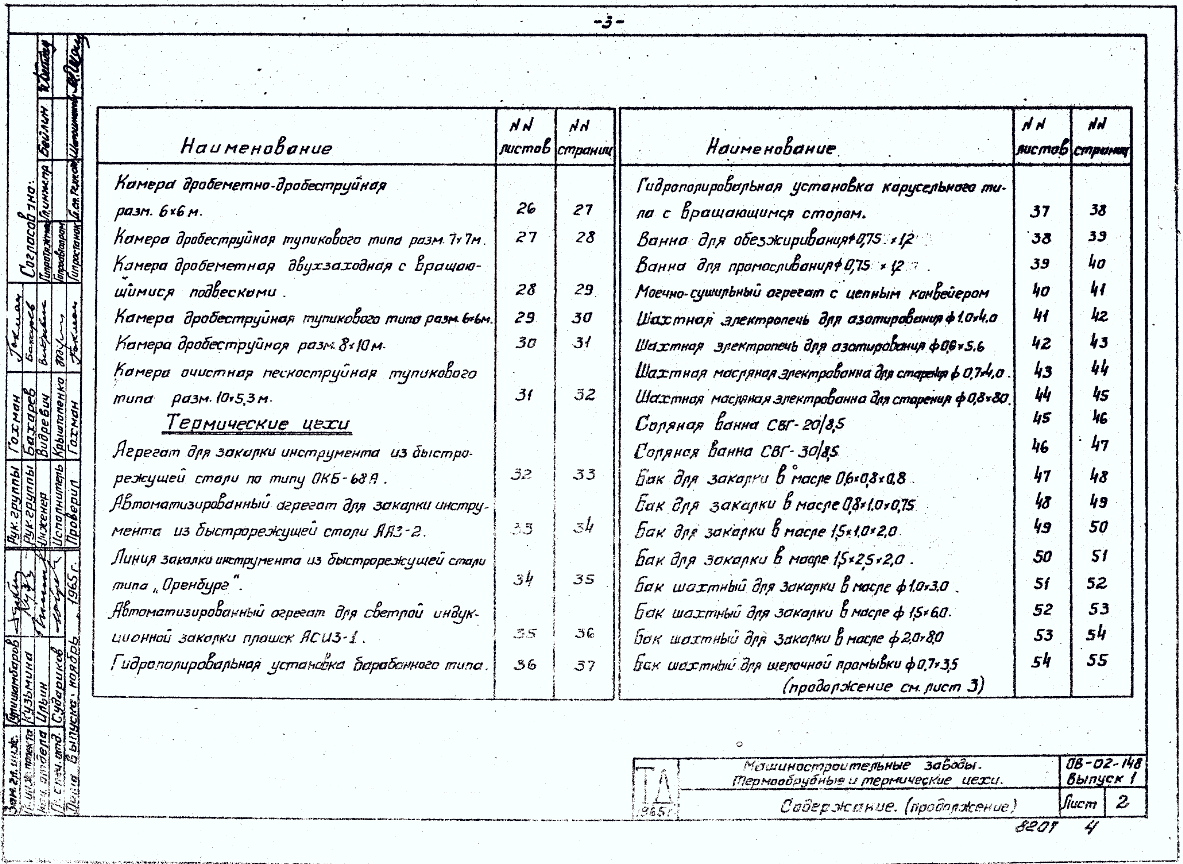 -3-
Наименование
NN листов
NN страниц
Камера дробеметно-дробеструйная
разм. 6×6 м. 26 27
Камера дробеструйная тупикового типа разм. 7×7м. 27 28
Камера дробеметная двухзаходная с вращаю-
щимися подвесками. 28 29
Камера дробеструйная тупикового типа разм. 6×6м. 29 30
Камера дробеструйная разм. 8×10 м. 30 31
Камера очистная пескоструйная тупикового
типа разм. 10×5,3 м. 31 32
Термические цехи
Агрегат для закалки инструмента из быстро-
режущей стали по типу ОКБ-68А. 32 33
Автоматизированный агрегат для закалки инстру-
мента из быстрорежущей стали ААЗ-2. 33 34
Линия закалки инструмента из быстрорежущей стали
типа „Оренбург". 34 35
Автоматизированный агрегат для светлой индук-
ционной закалки плашек АСИЗ-1. 35 36
Гидрополировальная установка барабанного типа. 36 37
Наименование
NN листов
NN страниц
Гидрополировальная установка карусельного ти-
па с вращающимся столом. 37 38
Ванна для обезжиривания ф 0,75 × 1,2 38 39
Ванна для промасливания ф 0,75 × 1,2 . 39 40
Моечно-сушильный агрегат с цепным конвейером 40 41
Шахтная электропечь для азотирования ф 1.0×4,0 41 42
Шахтная электропечь для азотирования ф 0,8×5,6 42 43
Шахтная масляная электрованна для старения ф 0,7×4,0. 43 44
Шахтная масляная электрованна для старения ф 0,8×8,0. 44 45
Соляная ванна СВГ-20/8,5 45 46
Соляная ванна СВГ-30/8,5. 46 47
Бак для закалки в масле 0,6×0,8×0,8 47 48
Бак для закалки в масле 0,8×1.0×0,75 48 49
Бак для закалки в масле 1,5×1,0×2,0. 49 50
Бак для закалки в масле 1,5×2,5×2,0. 50 51
Бак шахтный для закалки в масле ф 1.0×3.0. 51 52
Бак шахтный для закалки в масле ф 1,5×6.0. 52 53
Бак шахтный для закалки в масле ф 2,0×8,0 53 54
Бак шахтный для щелочной промывки ф 0,7×3,5 54 55
(продолжение см. лист 3)
Согласовано:
Гл.инж.пр. Бейлин
Рук.группы Гохман
Рук.группы Бахарев
Инженер
Исполнитель Крышталенко
Проверил Гохман
Зам.гл.инж.
Кузьмина
Ильин
Судариков
Дата выпуска: ноябрь, 1965 г.
ТД
1965г
Машиностроительные заводы.
Термообрубные и термические цехи.
ОВ-02-148
Выпуск 1
Содержание. (продолжение)
Лист 2
8207 4